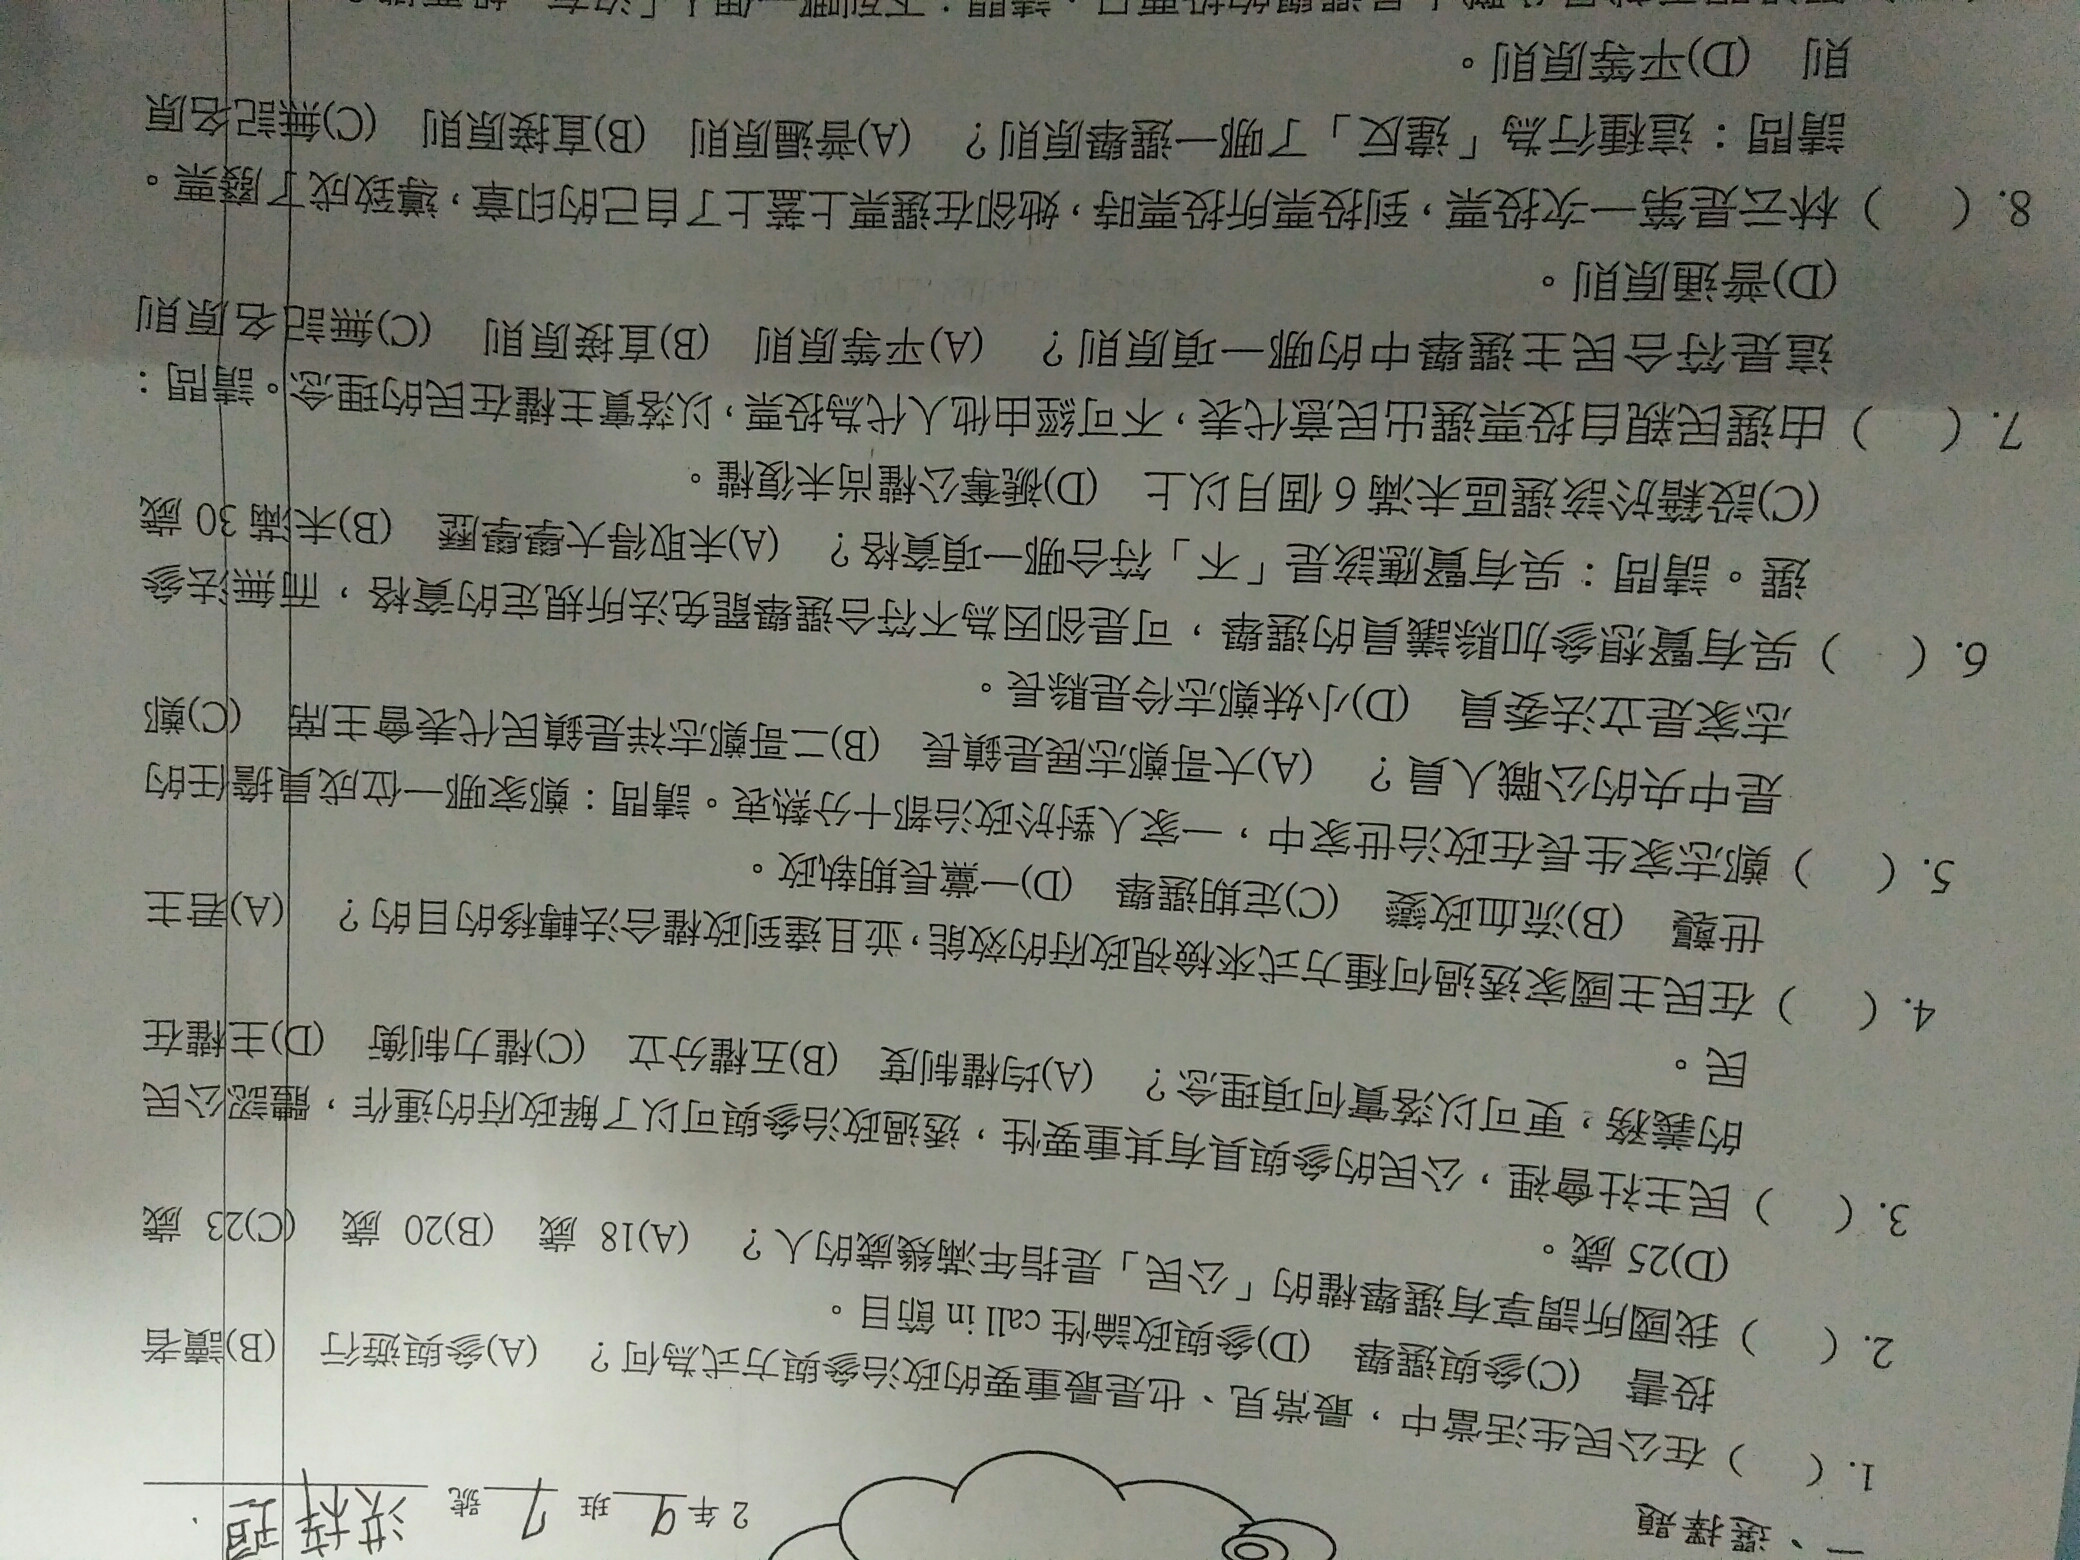 一、選擇題
2 年 9 班 7 號 洪梓
1. (　) 在公民生活當中，最常見、也是最重要的政治參與方式為何？ (A)參與遊行 (B)讀者
投書 (C)參與選舉 (D)參與政論性 call in 節目。
2. (　) 我國所謂享有選舉權的「公民」是指年滿幾歲的人？ (A)18 歲 (B)20 歲 (C)23 歲
(D)25 歲。
3. (　) 民主社會裡，公民的參與具有其重要性，透過政治參與可以了解政府的運作，體認公民
的義務，更可以落實何項理念？ (A)均權制度 (B)五權分立 (C)權力制衡 (D)主權在
民。
4. (　) 在民主國家透過何種方式來檢視政府的效能，並且達到政權合法轉移的目的？ (A)君主
世襲 (B)流血政變 (C)定期選舉 (D)一黨長期執政。
5. (　) 鄭志家生長在政治世家中，一家人對於政治都十分熱衷。請問：鄭家哪一位成員擔任的
是中央的公職人員？ (A)大哥鄭志展是鎮長 (B)二哥鄭志祥是鎮民代表會主席 (C)鄭
志家是立法委員 (D)小妹鄭志伶是縣長。
6. (　) 吳有賢想參加縣議員的選舉，可是卻因為不符合選舉罷免法所規定的資格，而無法參
選。請問：吳有賢應該是「不」符合哪一項資格？ (A)未取得大學學歷 (B)未滿 30 歲
(C)設籍於該選區未滿 6 個月以上 (D)褫奪公權尚未復權。
7. (　) 由選民親自投票選出民意代表，不可經由他人代為投票，以落實主權在民的理念。請問：
這是符合民主選舉中的哪一項原則？ (A)平等原則 (B)直接原則 (C)無記名原則
(D)普通原則。
8. (　) 林云是第一次投票，到投票所投票時，她卻在選票上蓋上了自己的印章，導致成了廢票。
請問：這種行為「違反」了哪一選舉原則？ (A)普遍原則 (B)直接原則 (C)無記名原
則 (D)平等原則。